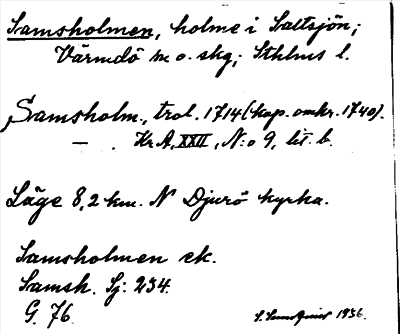 Samsholmen, holme i Saltsjön;
Värmdö sn o. skg; Sthlms l.
Samsholm., trol. 1714 (kop. omkr. 1740).
— . Kr A, XXII, N:o 9, lit. b.
Läge 8,2 km. N Djurö kyrka.
Samsholmen ek.
Samsh. Sj: 234.
G. 76.
1936.